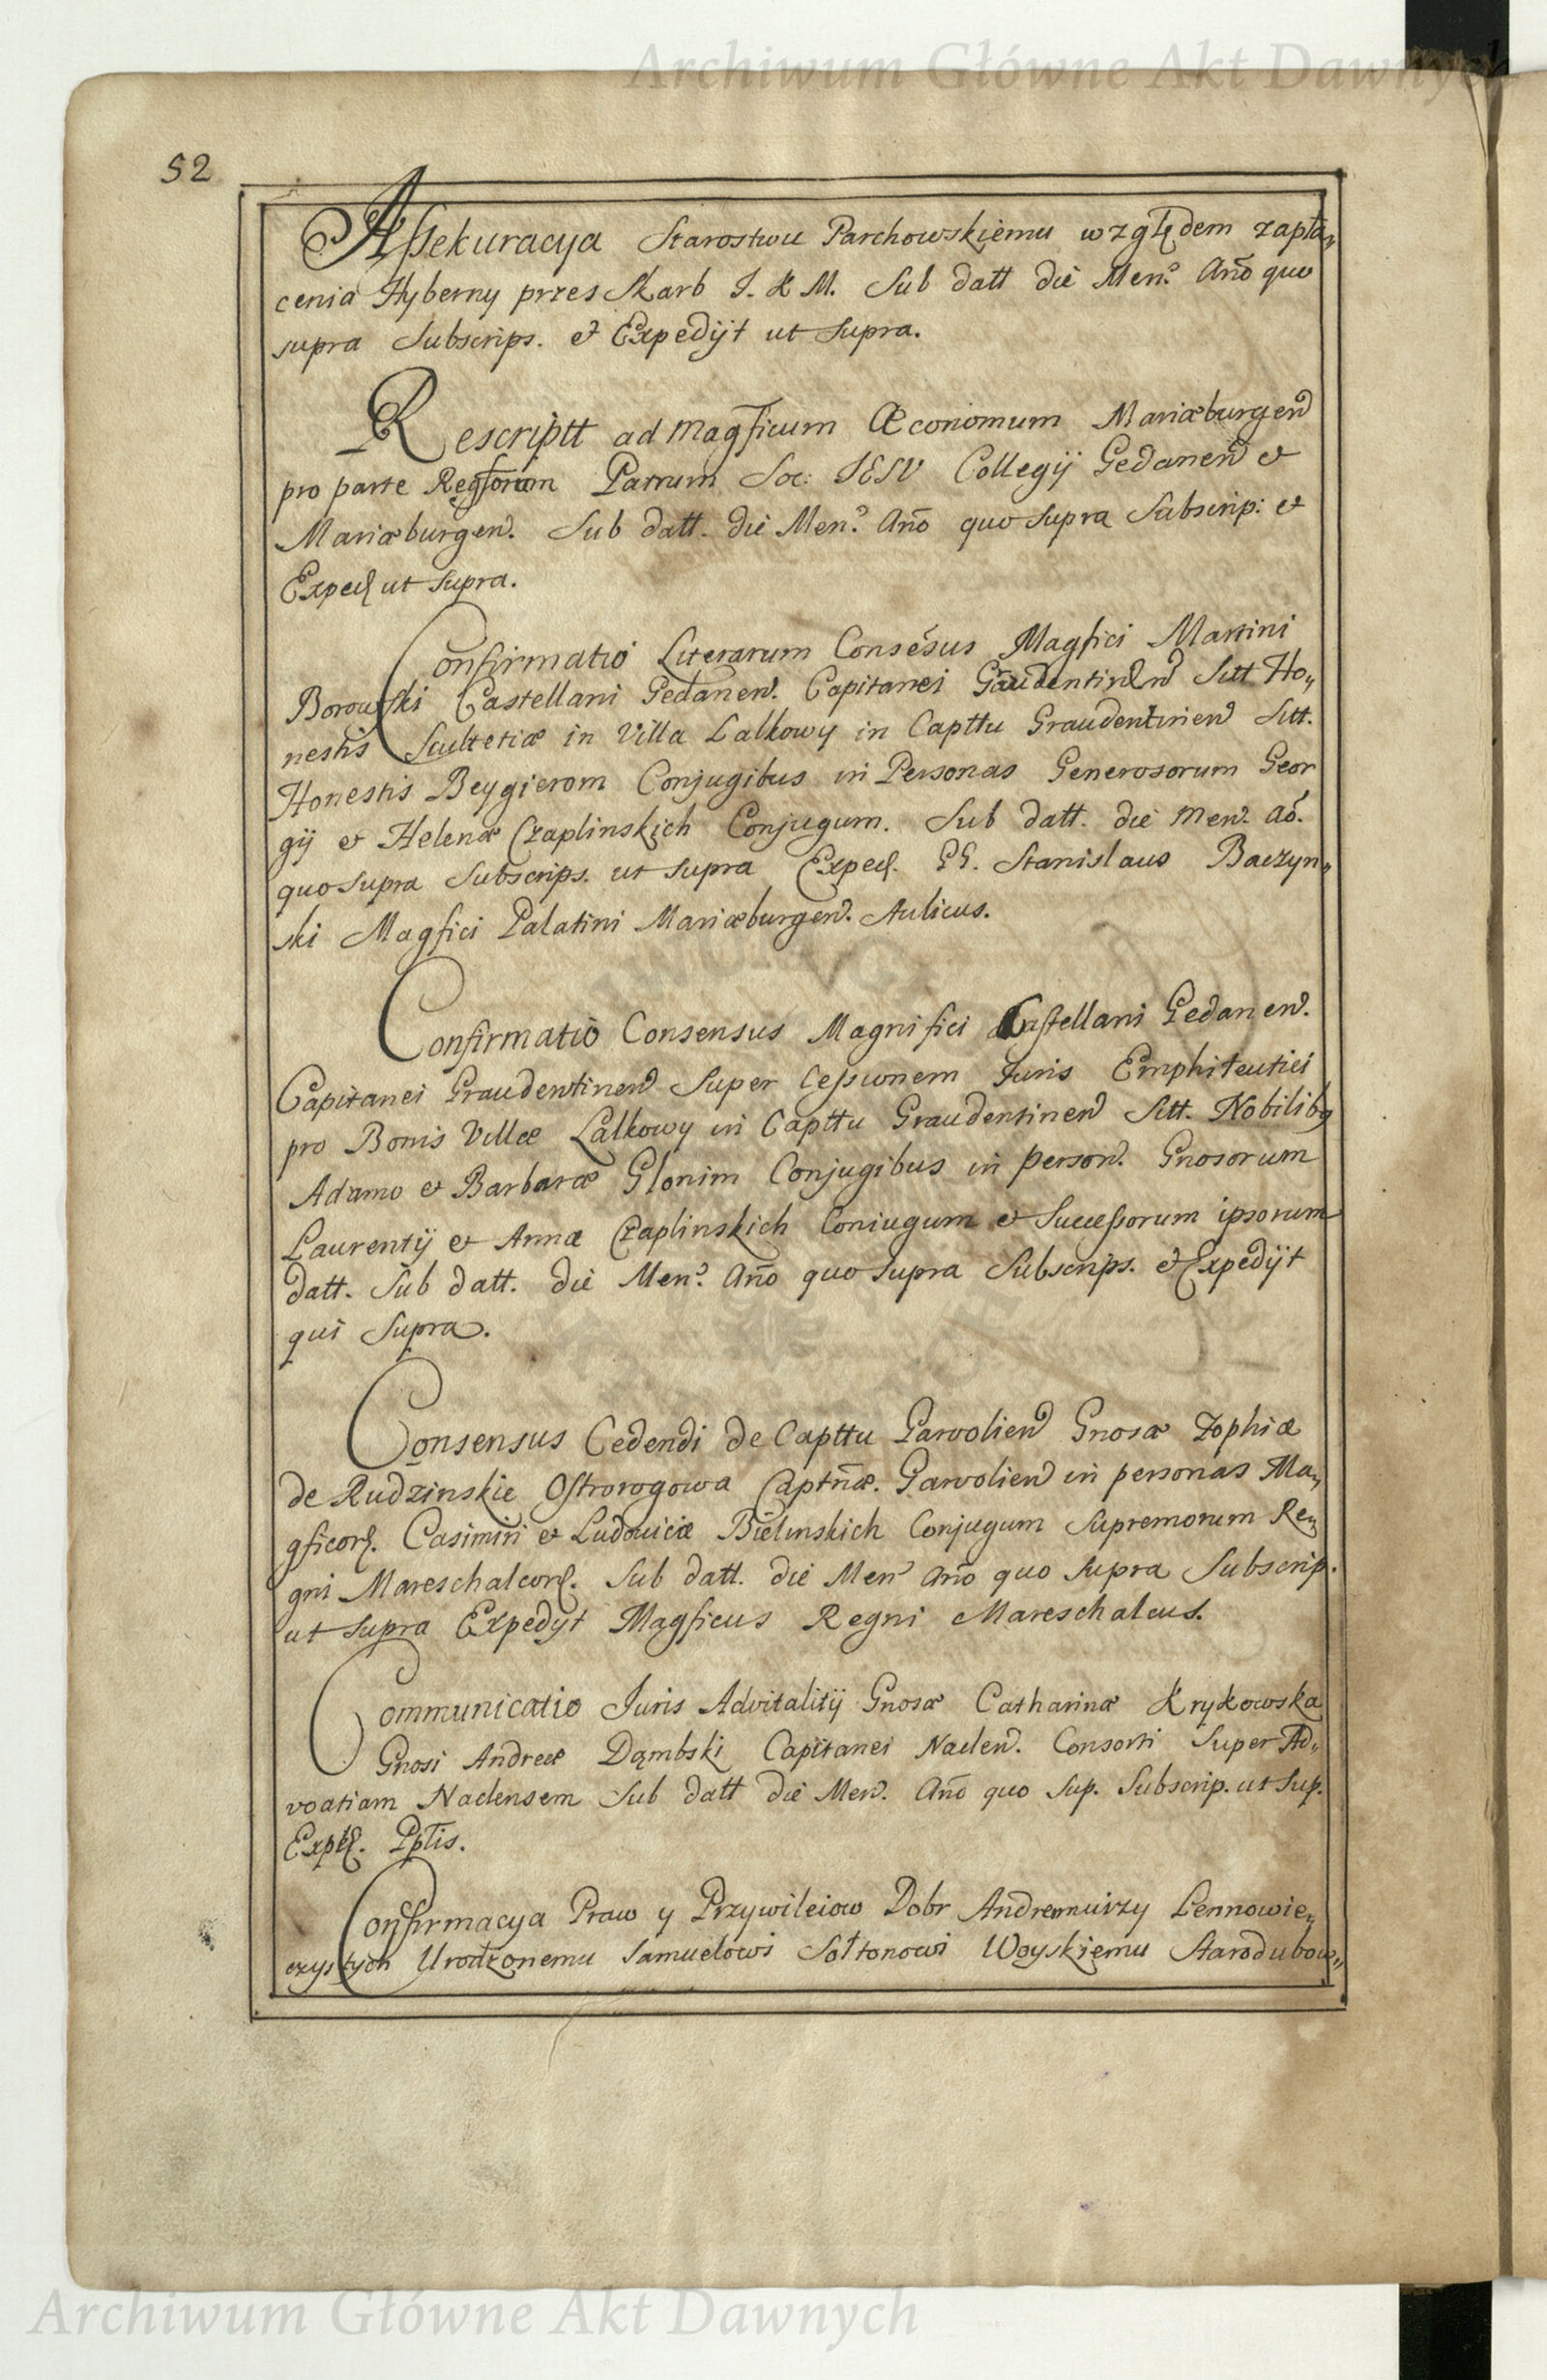 Archiwum Główne Akt Dawnych
52
Assekuracya Starostwu Parchowskiemu względem zapła„
cenia Hyberny przes Skarb J. K M. Sub datt die Men? Año quo
supra Subscrips. et Expedijt ut Supra.
Rescriptt ad Magficum Œconomum Mariæburgen
pro parte Patrum Soc: IESU Collegij Gedanen et
Mariæburgen. Sub datt. die Men? Año quo Supra Subscrip: et
Exped ut Supra.
Confirmatio Literarum Consēsus Magfici Martini
Borowski Castellani Gedanen. Capitanei Graudentinen Sitt Ho„
nestis Scultetiæ in Villa Lalkowy in Capttu Graudentinen Sitt.
Honestis Beygierom Conjugibus in Personas Generosorum Geor
gij et Helenæ Czaplinskich Conjugum. Sub datt. die Men. Aō.
quo Supra Subscrips. ut Supra Exped. GG. Stanislaus Baczyn„
ski Magfici Palatini Mariæburgen. Aulicus.
Confirmatio Consensus Magnifici Castellani Gedanen.
Capitanei Graudentinen Super Cessionem Juris Emphiteutici
pro Bonis Villæ Lalkowy in Capttu Graudentinen Sitt. Nobilibq
Adamo et Barbaræ Glonim Conjugibus in Person. Gnosorum
Laurentij et Annæ Czaplinskich Coniugum et Successorum ipsorum
datt. Sub datt. die Men? Año quo Supra Subscrips. et Expedijt
qui Supra.
Consensus Cedendi de Capttu Garvolien Gnosæ Zophiæ
de Rudzinskie Ostrorogowa Captñæ. Garvolien in personas Ma„
gficor. Casimiri et Ludovicæ Bielinskich Conjugum Supremorum Re„
gni Mareschalcor. Sub datt. die Men Año quo Supra Subscrip.
ut Supra Expedyt Magficus Regni Mareschalcus.
Communicatio Juris Advitalitij Gnosæ Catharinæ Krykowska
Gnosi Andreæ Dąmbski Capitanei Naclen. Consorti Super Ad„
voatiam Naclensem Sub datt die Men. Año quo Sup. Subscrip. ut Sup.
Exped. Pptis.
Confirmacya Praw y Przywileiow Dobr Andremuizy Lennowie„
czystych Urodzonemu Samuelowi Sołtonowi Woyskiemu Starodubow„
Archiwum Główne Akt Dawnych